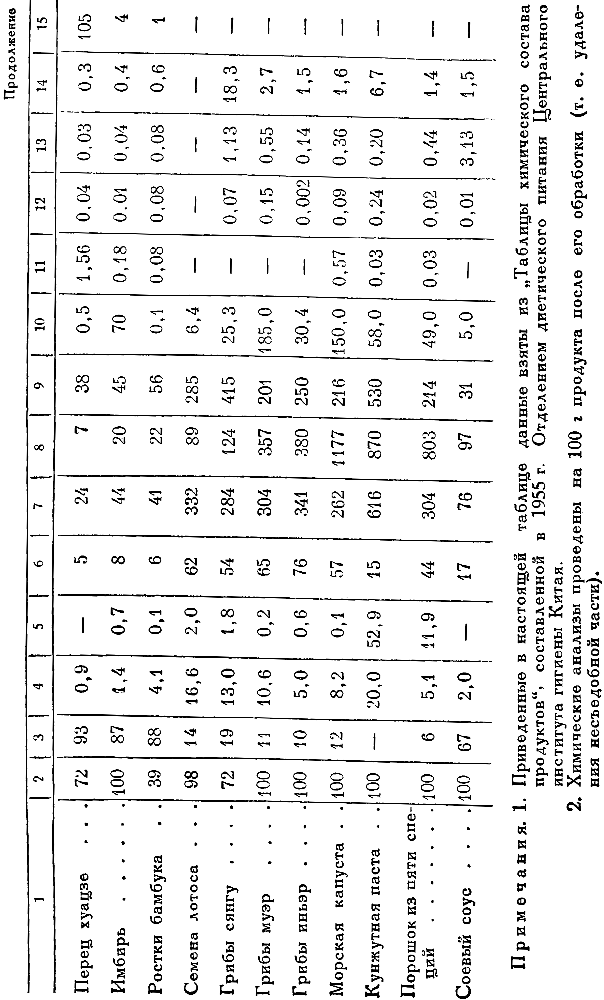 Продолжение
1 2 3 4 5 6 7 8 9 10 11 12 13 14 15
Перец хуацзе . . . . 72 93 0,9 — 5 24 7 38 0,5 1,56 0,04 0,03 0,3 105
Имбирь . . . . . . . 100 87 1,4 0,7 8 44 20 45 70 0,18 0,01 0,04 0,4 4
Ростки бамбука . . 39 88 4,1 0,1 6 41 22 56 0,1 0,08 0,08 0,08 0,6 1
Семена лотоса . . . 98 14 16,6 2,0 62 332 89 285 6,4 — — — — —
Грибы сянгу . . . . 72 19 13,0 1,8 54 284 124 415 25,3 — 0,07 1,13 18,3 —
Грибы муэр . . . . 100 11 10,6 0,2 65 304 357 201 185,0 — 0,15 0,55 2,7 —
Грибы иньэр . . . . 100 10 5,0 0,6 76 341 380 250 30,4 — 0,002 0,14 1,5 —
Морская капуста . . 100 12 8,2 0,1 57 262 1177 216 150,0 0,57 0,09 0,36 1,6 —
Кунжутная паста . . 100 — 20,0 52,9 15 616 870 530 58,0 0,03 0,24 0,20 6,7 —
Порошок из пяти спе-
ций . . . . . . . 100 6 5,1 11,9 44 304 803 214 49,0 0,03 0,02 0,44 1,4 —
Соевый соус . . . . 100 67 2,0 — 17 76 97 31 5,0 — 0,01 3,13 1,5 —
Примечания. 1. Приведенные в настоящей таблице данные взяты из „Таблицы химического состава
продуктов“, составленной в 1955 г. Отделением диетического питания Центрального
института гигиены Китая.
2. Химические анализы проведены на 100 г продукта после его обработки (т. е. удале-
ния несъедобной части).